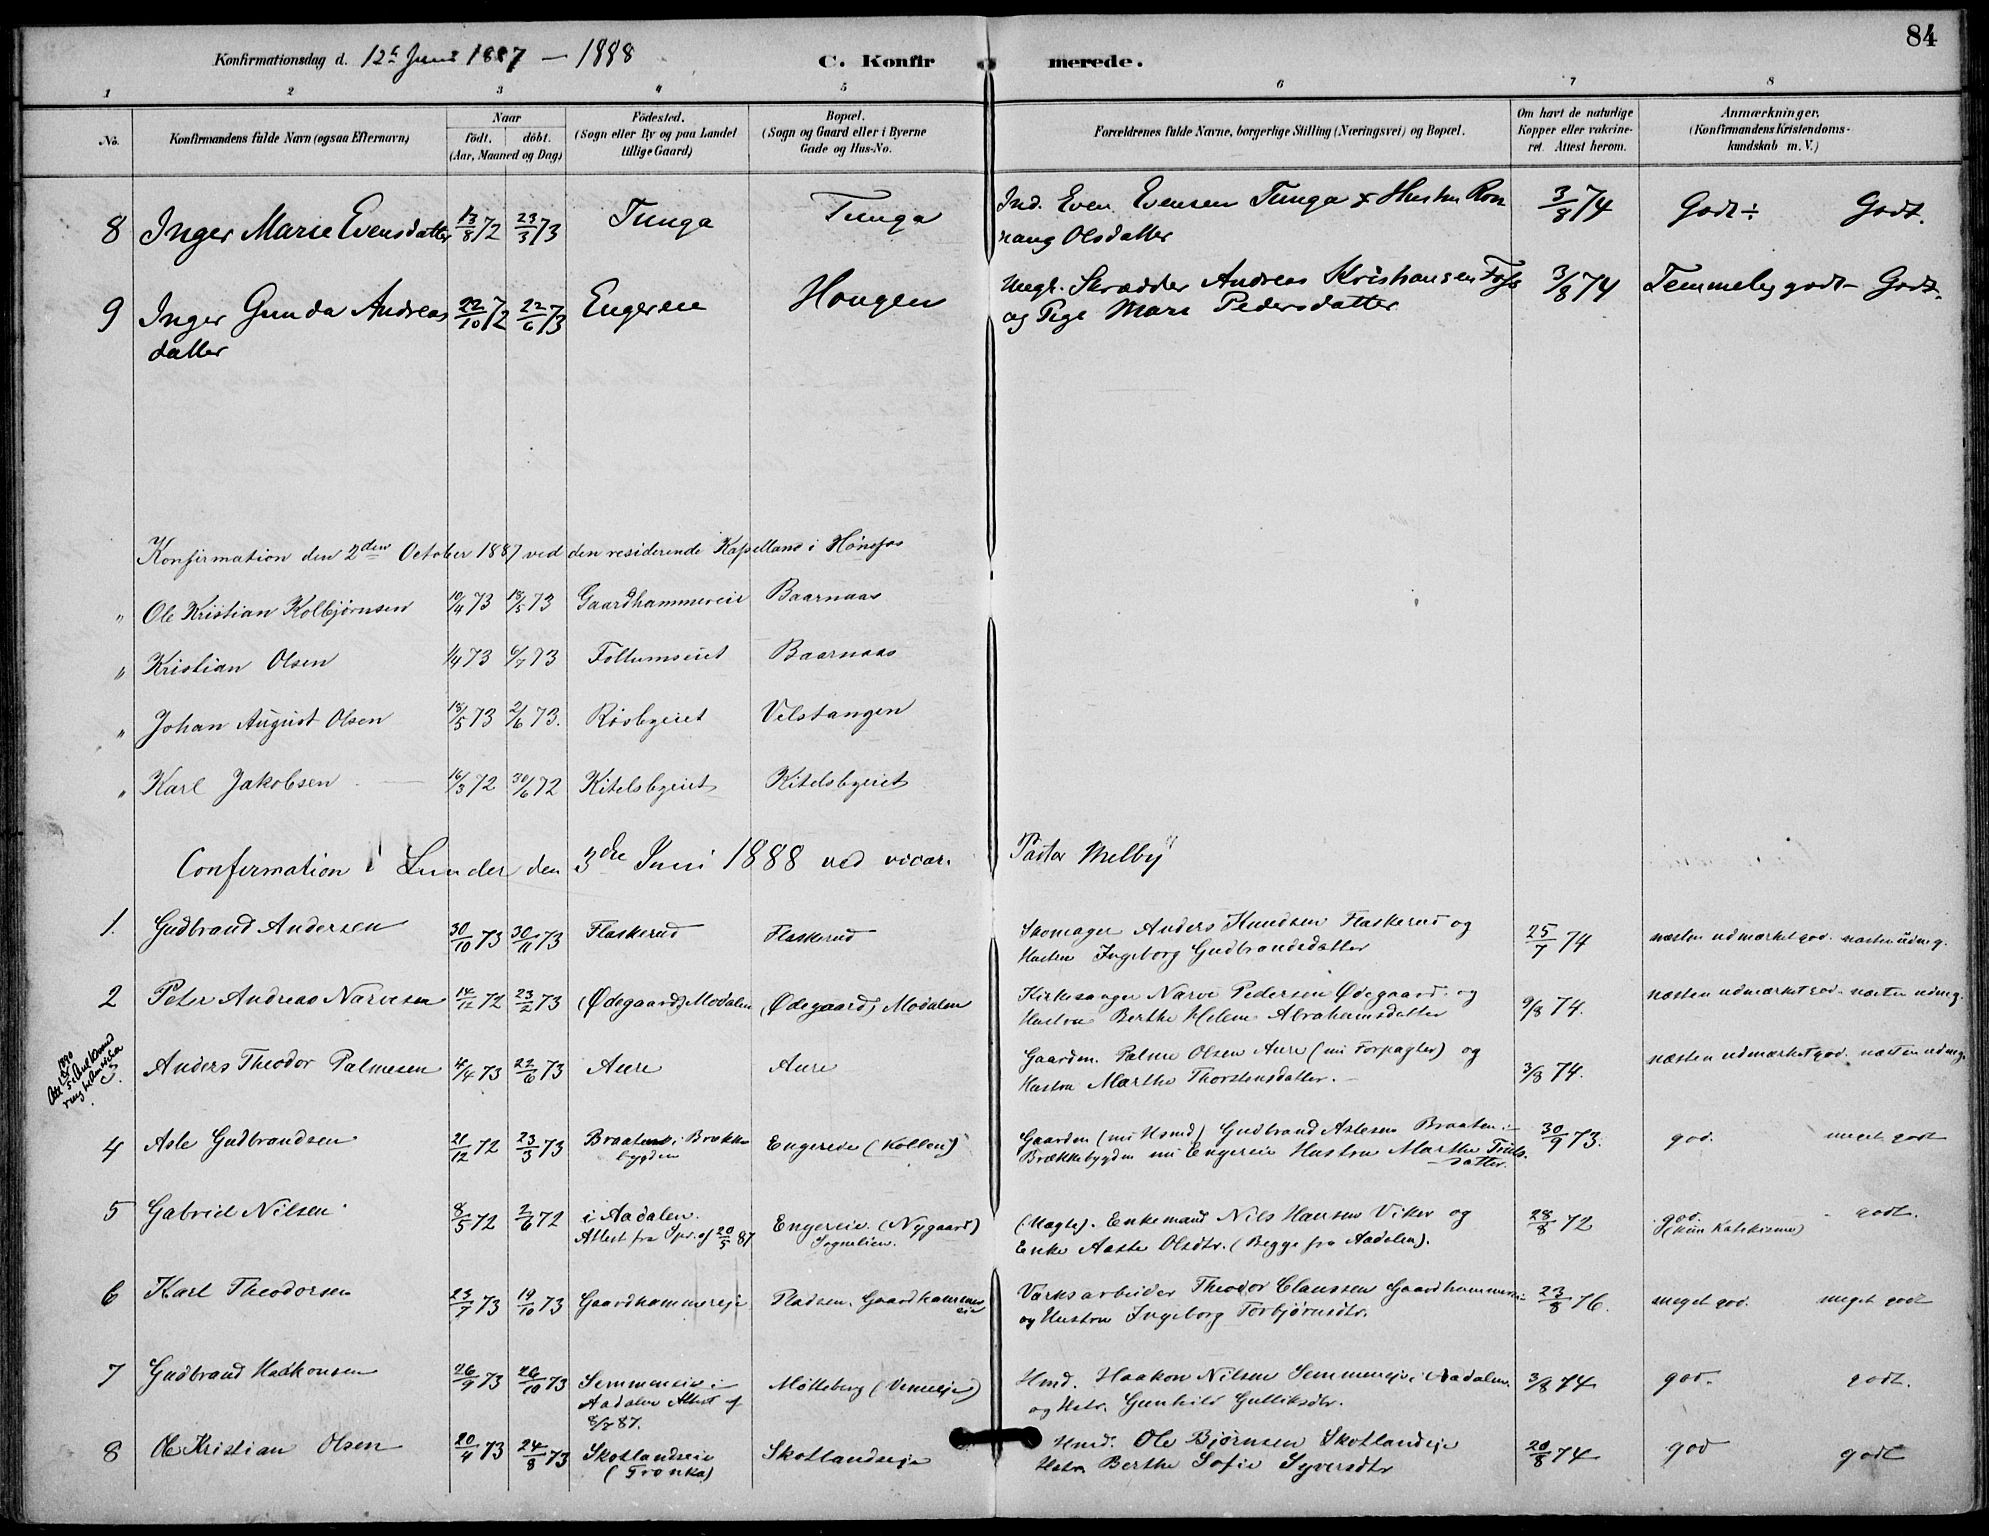 84
Konfirmationsdag d. 12te Juni 1887 – 1888 C. Konfirmerede.
1 2 3 4 5 6 7 8
No. Konfirmandens fulde Navn (ogsaa Efternavn) Naar født. døbt. (Aar, Maaned og Dag) Fødested. (Sogn eller By og paa Landet tillige Gaard) Bopæl. (Sogn og Gaard eller i Byerne Gade og Hus-No. Forældrenes fulde Navne, borgerlige Stilling (Næringsvei) og Bopæl. Om havt de naturlige Kopper eller vakcineret. Attest herom. Anmærkninger. (Konfirmandens Kristendomskundskab m. V.)
8 Inger Marie Evensdatter 13/8 72 23/3 73 Tunga Tunga Ind. Even Evensen Tunga & Hustru Ron
naug Olsdatter 3/8 74 Godt ÷ Godt.
9 Inger Gunda Andreas
datter 22/10 72 22/6 73 Engereie Hougen Ungk. Skrædder Andreas Kristiansen Foss
og Pige Mari Pedersdatter 3/8 74 Temmelig godt – Godt.
Konfirmation den 2den October 1887 ved den residerende Kapellans i Hønefos
" Ole Kristian Kolbjørnsen 10/4 73 18/5 73 Gaardhammereie Baarnaas
" Kristian Olsen 1/4 73 6/7 73 Follumseiet Baarnaas
" Johan August Olsen 18/5 73 2/6 73. Risbyeiet Velstangen
" Karl Jakobsen 16/3 72 30/6 72 Kitelsbyeiet Kitelsbyeiet
Confirmation i Lunder den 3die Juni 1888 ved vicar. Pastor Melbÿ
1. Gudbrand Andersen 30/10 73 30/11 73 Flaskerud Flaskerud Skomager Anders Knudsen Flaskerud og
Hustru Ingeborg Gudbrandsdatter 25/7 74 næsten udmærket god. næsten udm g.
2 Peter Andreas Narvesen 14/12 72 23/2 73 (Ødegaard) Modalen (Ødegaard) Modalen Kirkesanger Narve Pedersen Ødegaard og
Hustru Berthe Helene Abrahamsdatter 9/8 74. næsten udmærket god. næsten udm g.
3. Anders Theodor Palmesen 4/4 73 22/6 73 Aure Aure Gaardm. Palme Olsen Aure (nu Forpagter) og
Hustru Marthe Thorstensdatter. 3/8 74. næsten udmærket god. næsten udm g.
4 Asle Gudbrandsen 21/12 72 23/3 73 Braaten i Brække
bygden Engereie (Kollen) Gaardm (nu Hsmd) Gudbrand Aslesen Braaten i
Brækkebygden nu Engereie Hustru Marthe Truls
datter. 30/9 73. god. meget godt
5 Gabriel Nilsen 8/5 72 2/6 72 i Aadalen.
Attest fra Spr. af 20/5 87 Engereie. (Nygaard)
Sognelien. (Uægte). Enkemand Nils Hansen Viker og
Enke Aaste Olsdtr. (Begge fra Aadalen). 28/8 72 god.
(kun Katekisme) godt.
6 Karl Theodorsen 23/7 73 19/10 73 Gaardhammereje Pladsen. Gaardhammer
eie Værksarbeider Theodor Claussen Gaardhammerei
og Hustru Ingeborg Torbjørnsdtr. 23/8 76. meget god. meget godt
7 Gudbrand Haakonsen 26/9 73 26/10 73 Semmereie i
Aadalen Attest af
8/7 87. Møtteberg (Vemeeje) Hmd. Haakon Nilsen Semmereje i Aadalen.
og Hstr. Gunhild Gulliksdtr. 3/8 74 god. godt.
8 Ole Kristian Olsen 20/4 73 24/8 73 Skotlandseie
(Tronka) Skotlandseje Hmd. Ole Bjørnsen Skotlandseje
Hstr. Berthe Sofie Syversdtr 20/8 74 god godt